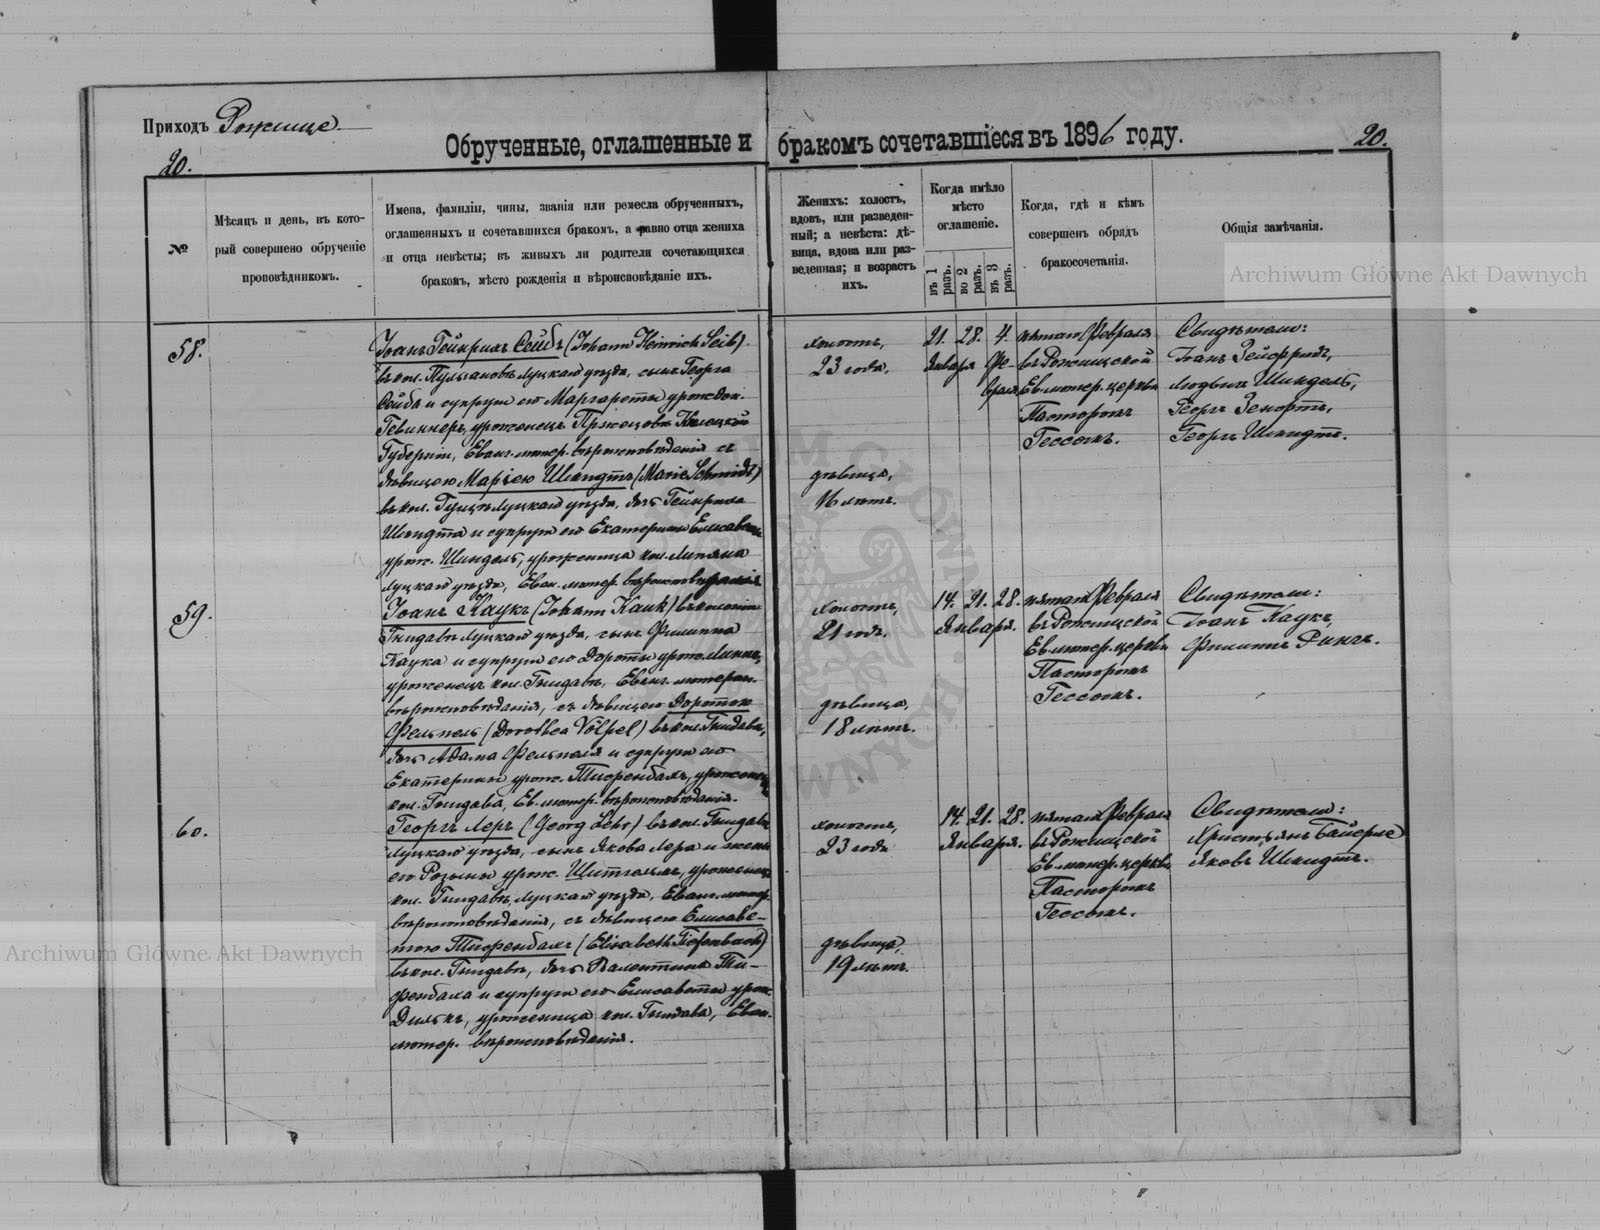 Приходъ Рожище.
Обрученные, оглашенные и бракомъ сочетавшіеся въ 1896 году.
20.
20.
№
Мѣсяцъ и день, въ кото-
рый совершено обрученіе
проповѣдникомъ.
Имена, фамиліи, чины, званія или ремесла обрученныхъ,
оглашенныхъ и сочетавшихся бракомъ, а равно отца жениха
и отца невѣсты; въ живыхъ ли родители сочетающихся
бракомъ, мѣсто рожденія и вѣроисповѣданіе ихъ.
Женихъ: холостъ,
вдовъ, или разведен-
ный; а невѣста: дѣ-
вица, вдова или раз-
веденная; и возрастъ
ихъ.
Когда имѣло
мѣсто
оглашеніе.
въ 1 разъ.
во 2 разъ.
въ 3 разъ.
Когда, гдѣ и кѣмъ
совершенъ обрядъ
бракосочетанія.
Общія замѣчанія.
58.
Іоанъ Гейнрихъ Сейбъ (Johann Heinrich Seib)
въ кол. Пульгановъ Луцкаго уѣзда, сынъ Георга
Сейба и супруги его Маргареты урожден.
уроженецъ Кѣлецкой
Губерніи, Еванг. лютер. вѣроисповѣданія съ
дѣвицею Маріею Шмидтъ (Marie Schmidt)
въ кол. Луцкаго уѣзда, дочь Гейнриха
Шмидта и супруги его Екатерины Елисаветы
урож. Шиндель, уроженица кол.
Луцкаго уѣзда, Еван. лютер. вѣроисповѣданія
холостъ,
23 года,
дѣвица,
16 лѣтъ.
21. 28. 4.
Января Фе-
враля
пятаго Февраля
въ Рожищской
Ев. лютер. церкви
Пасторомъ
Гессомъ.
Свидѣтели:
Іоанъ Зейфридъ,
Людвигъ Шиндель,
Георгъ
Георгъ Шмидтъ.
59.
Іоанъ Каукъ (Johann Kauk) въ колоніи
Гнидавѣ Луцкаго уѣзда, сынъ Филиппа
Каука и супруги его Доротеи урож.
уроженецъ кол. Гнидавѣ, Еванг. лютеран.
вѣроисповѣданія, съ дѣвицею Доротею
Фельпель (Dorothea Völpel) въ кол. Гнидавѣ,
дочь Адама Фельпеля и супруги его
Екатерины урож. Тифенбахъ, уроженица
кол. Гнидава, Ев. лютер. вѣроисповѣданія.
холостъ,
21 годъ.
дѣвица,
18 лѣтъ.
14. 21. 28.
Января.
пятаго Февраля
въ Рожищской
Ев. лютер. церкви
Пасторомъ
Гессомъ.
Свидѣтели:
Іоанъ Каукъ,
Филиппъ Рингъ.
60.
Георгъ Леръ (Georg Lehr) въ кол. Гнидавѣ
Луцкаго уѣзда, сынъ Якова Лера и жены
его Розины урож. уроженецъ
кол. Гнидавѣ, Луцкаго уѣзда, Еванг. лютер.
вѣроисповѣданія, съ дѣвицею Елисаве-
тою Тифенбахъ (Elisabeth Tiefenbach)
въ кол. Гнидавѣ, дочь Валентина Ти-
фенбаха и супруги его Елисаветы урож.
уроженица кол. Гнидава, Еван.
лютер. вѣроисповѣданія.
холостъ,
23 года
дѣвица,
19 лѣтъ.
14. 21. 28.
Января.
пятаго Февраля
въ Рожищской
Ев. лютер. церкви
Пасторомъ
Гессомъ.
Свидѣтели:
Христьянъ Байерле
Яковъ Шмидтъ.
Archiwum Główne Akt Dawnych
Archiwum Główne Akt Dawnych